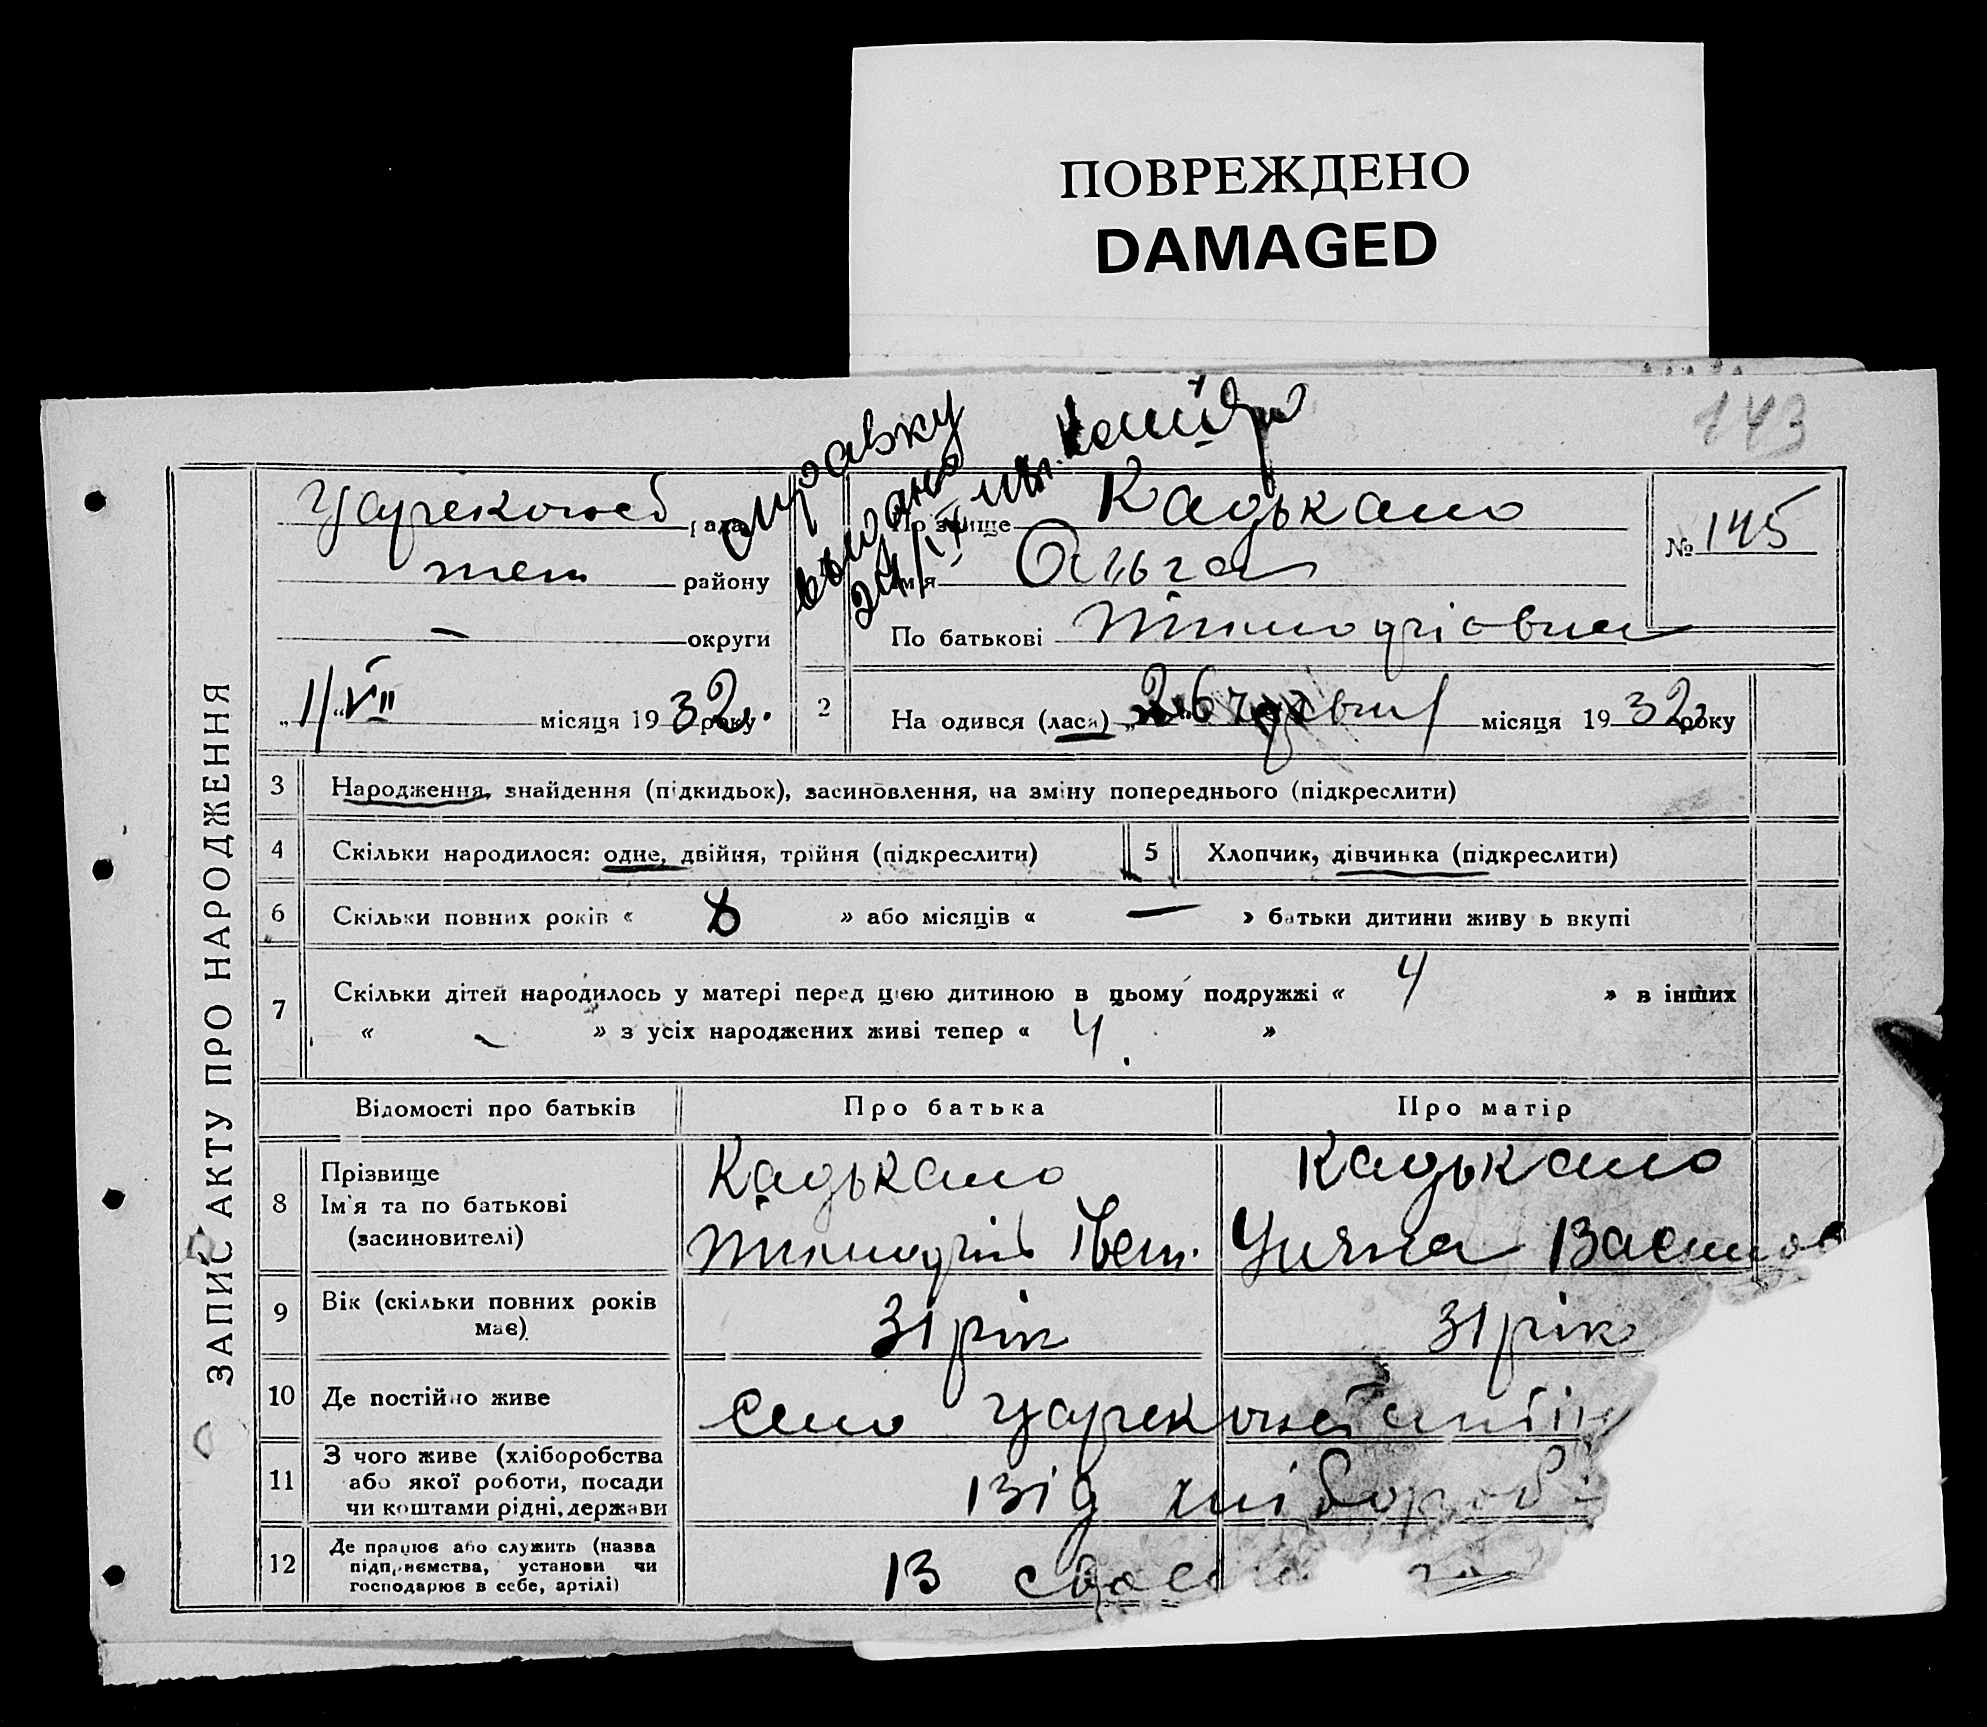 ПОВРЕЖДЕНО
DAMAGED
143
справку
ЗАПИС АКТУ ПРО НАРОДЖЕННЯ
рада
району
— округи
1/VII місяця 1932 року
Прізвище Кадькало
Ім'я Ольга
По батькові Тимофіівна
№ 145
2 На одився (лася) 26 червня місяця 1932 року
3 Народження, знайдення (підкидьок), засиновлення, на зміну попереднього (підкреслити)
4 Скільки народилося: одне, двійня, трійня (підкреслити)
5 Хлопчик, дівчинка (підкреслити)
6 Скільки повних років « 8 » або місяців « — » батьки дитини живу ь вкупі
7 Скільки дітей народилось у матері перед цією дитиною в цьому подружжі « 4 » в інших
« - » з усіх народжених живі тепер « 4. »
Відомості про батьків Про батька Про матір
8 Прізвище
Ім'я та по батькові
(засиновителі)
Кадькало
Тимофій
Кадькало
9 Вік (скільки повних років
має)
31 рік
31 рік
10 Де постійно живе
село
11 З чого живе (хліборобства
або якої роботи, посади
чи коштами рідні, держави
від хлібороб
12 Де працює або служить (назва
підприємства, установи чи
господарює в себе, артілі)
В